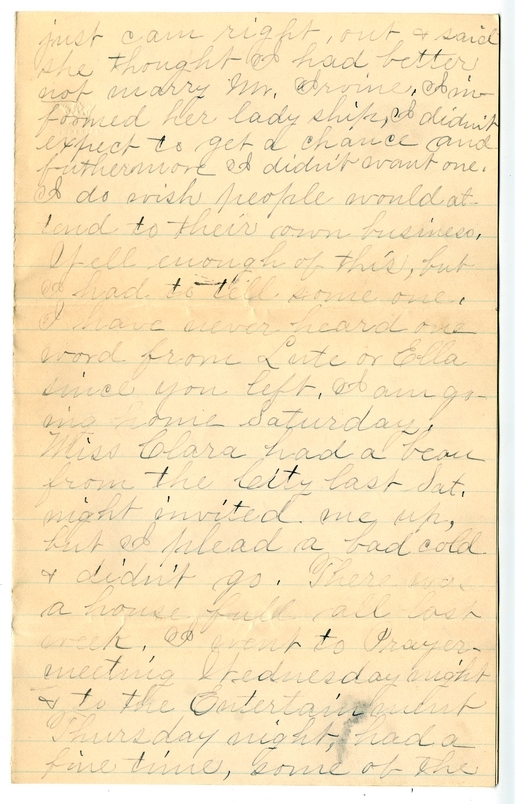 just cam right, out & said
she thought I had better
not marry Mr. Irvine. I in-
formed her lady ship, I didn't
expect to get a chance and
futhermore I didn't want one.
I do wish people would at-
tend to their own business.
Well enough of this, but
I had to tell some one.
I have never heard one
word from Lute or Ella
since you left. I am go-
ing home Saturday.
Miss Clara had a beau
from the City last Sat.
night invited me up,
but I plead a bad cold
& didn't go. There was
a house full all last
week. I went to Prayer-
meeting Wednesday night
& to the Entertainment
Thursday night, had a
fine time, some of the